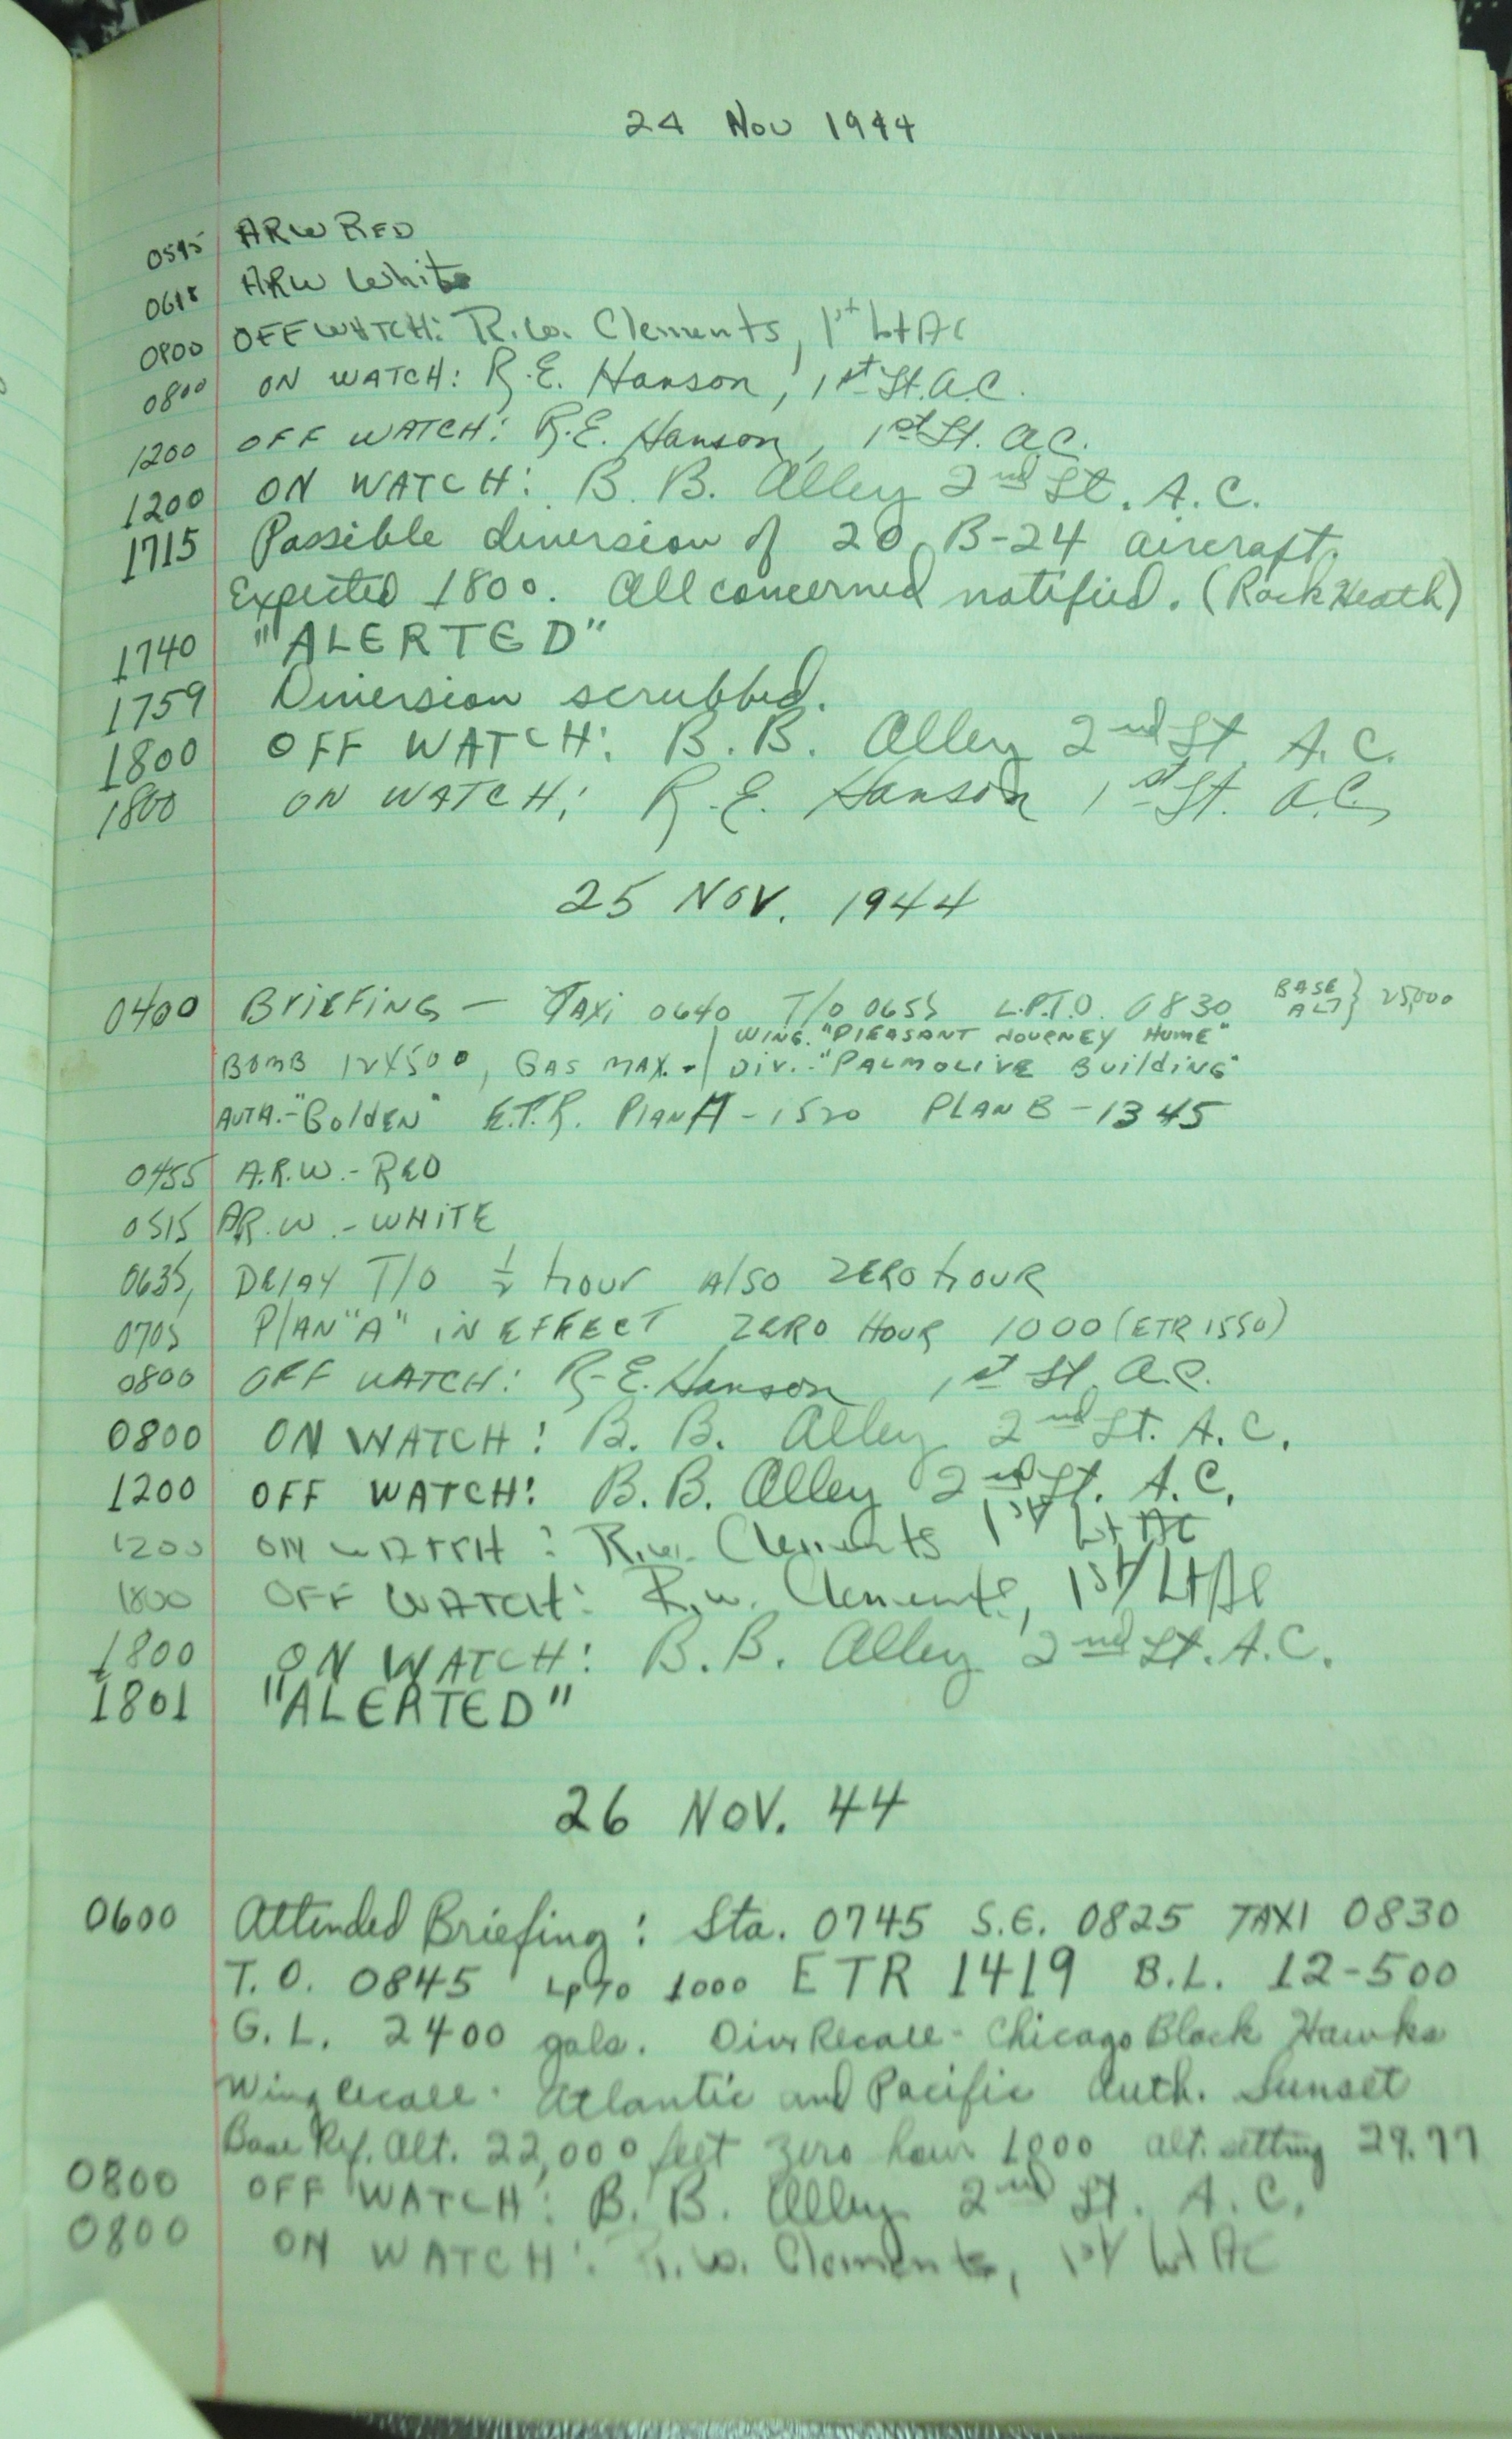 24 Nov 1944
0545 ARW RED
0618 ARW White
0800 OFF WATCH: R.W. Clements, 1st Lt AC
0800 ON WATCH: R.E. Hanson, 1st Lt. A.C.
1200 OFF WATCH: R.E. Hanson, 1st Lt. A.C.
1200 ON WATCH: B. B. Alley 2nd Lt. A.C.
1715 Possible diversion of 20 B-24 aircraft.
Expected 1800. All concerned notified. (RackHeath)
1740 "ALERTED"
1759 Diversion scrubbed.
1800 OFF WATCH: B.B. Alley 2nd Lt A.C.
1800 ON WATCH: R.E. Hanson 1st Lt. A.C.
25 NOV. 1944
0400 BRIEFING - TAXI 0640 T/O 0655 L.P.T.O. 0830 BASE ALT } 25,000
WING. "PLEASANT JOURNEY HOME"
BOMB 12X500, GAS MAX. - DIV. - "PALMOLIVE BUILDING"
AUTH. - "GOLDEN" E.T.R. PLAN A - 1520 PLAN B - 1345
0455 A.R.W. - RED
0515 A.R.W. - WHITE
0635, DELAY T/O 1/2 hour ALSO ZERO hOUR
0705 PLAN "A" IN EFFECT ZERO HOUR 1000 (ETR 1550)
0800 OFF WATCH: R.E. Hanson 1st Lt. A.C.
0800 ON WATCH: B. B. Alley 2nd Lt. A.C.
1200 OFF WATCH: B.B. Alley 2nd Lt. A.C.
1200 ON WATCH: R.W. Clements 1st Lt AC
1800 OFF WATCH: R.W. Clements, 1st Lt AC
1800 ON WATCH: B.B. Alley 2nd Lt. A.C.
1801 "ALERTED"
26 NOV. 44
0600 Attended Briefing: Sta. 0745 S.E. 0825 TAXI 0830
T.O. 0845 LPTO 1000 ETR 1419 B.L. 12-500
G.L. 2400 gals. Div Recall - Chicago Black Hawks
Wing Recall - Atlantic and Pacific Auth. Sunset
Base Ref. Alt. 22,000 feet zero hour 1000 alt. setting 29.77
0800 OFF WATCH: B.B. Alley 2nd Lt. A.C.
0800 ON WATCH: R.W. Clements, 1st Lt AC